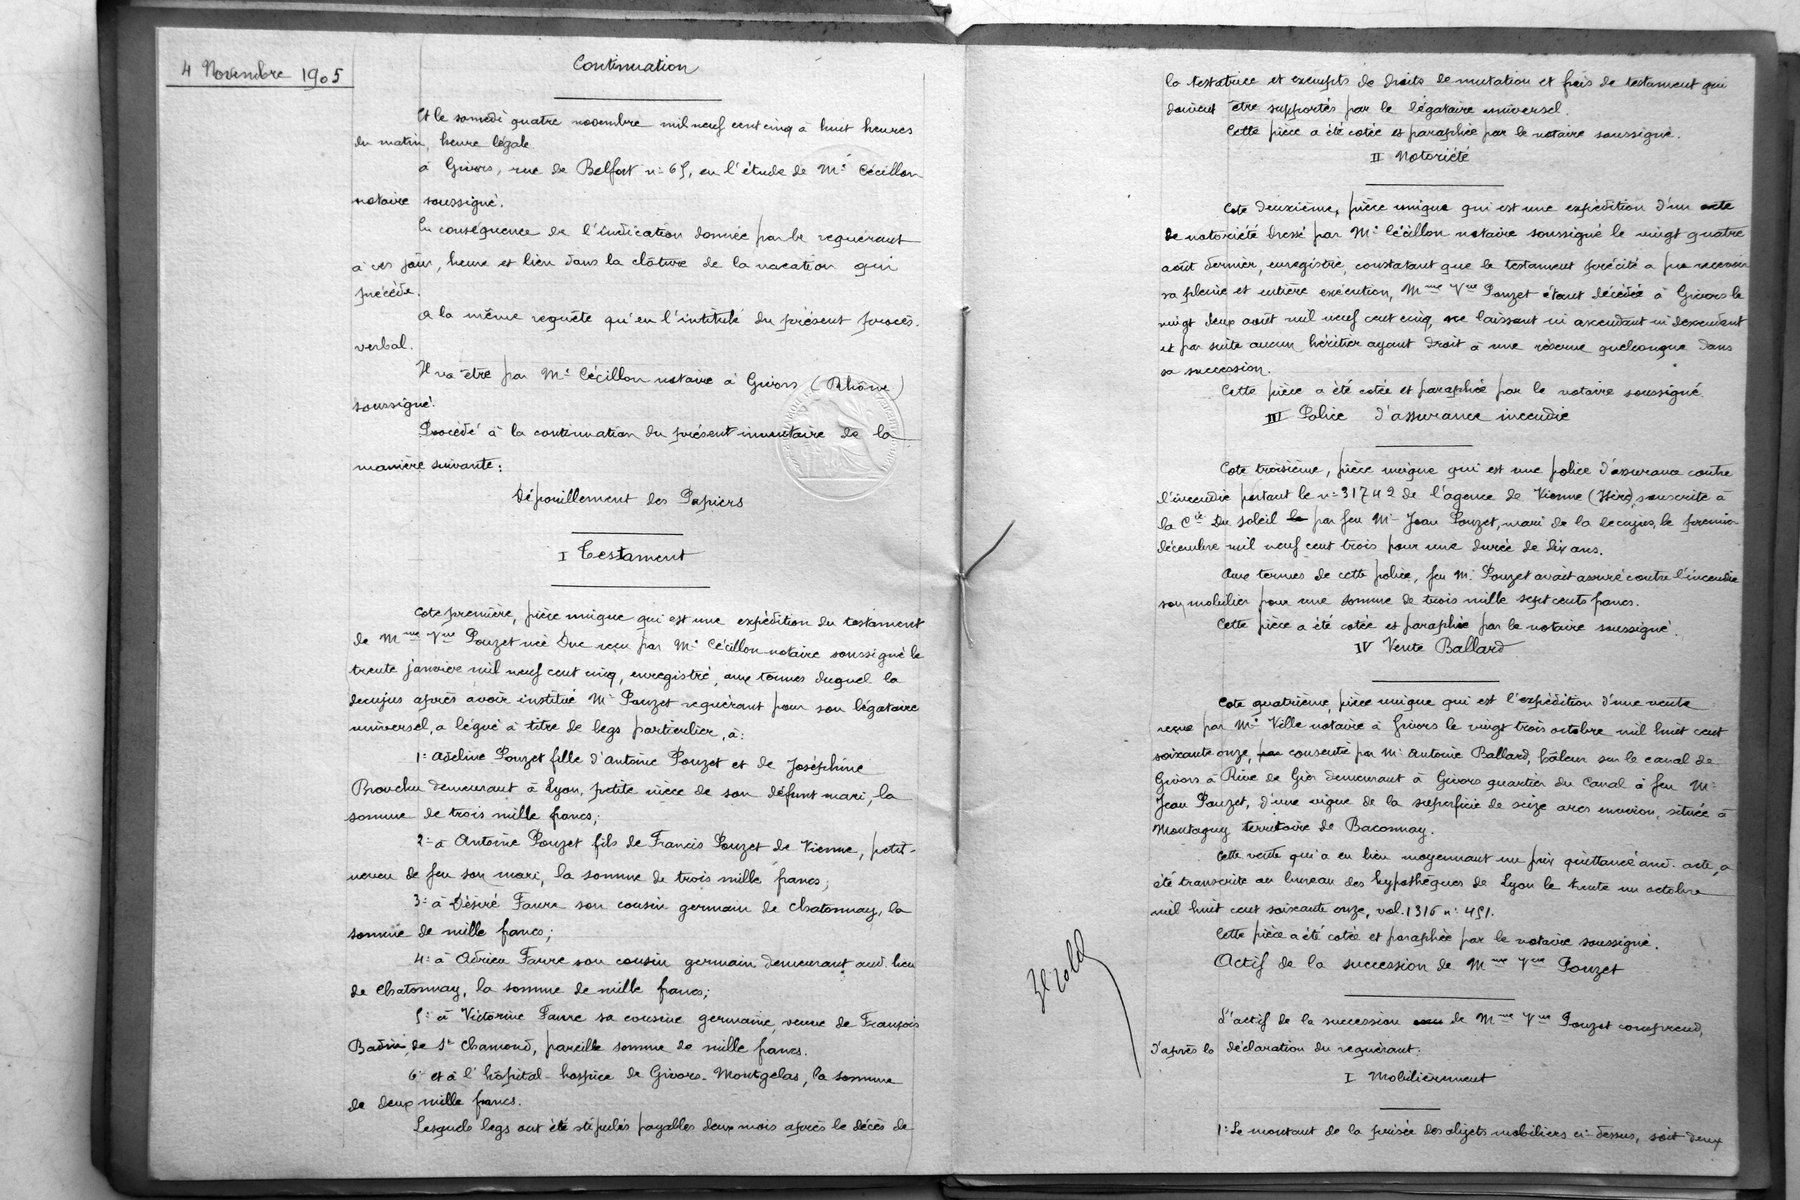 4 Novembre 1905
Continuation
Et le samedi quatre novembre mil neuf cent cinq à huit heures
du matin, heure légale
à Givors, rue de Belfort n: 65, en l'étude de Me Cécillon
notaire soussigné.
En conséquence de l'indication donnée par le requérant
à ces jour, heure et lieu dans la clôture de la vacation qui
précède.
A la même requête qu'en l'intitulé du présent procès-
verbal.
Il va être par Me Cécillon notaire à Givors (Rhône)
soussigné.
Procédé à la continuation du présent inventaire de la
manière suivante:
Dépouillement des Papiers
I Testament
Cote première, pièce unique qui est une expédition du testament
de Mme Vve Pouzet née Duc reçu par Me Cécillon notaire soussigné le
trente janvier mil neuf cent cinq, enregistré, aux termes duquel la
decujus après avoir institué Mr Pouzet requérant pour son légataire
universel, a légué à titre de legs particulier, à:
1: Adeline Pouzet fille d'Antoine Pouzet et de Joséphine
Brouchu demeurant à Lyon, petite nièce de son défunt mari, la
somme de trois mille francs;
2: à Antoine Pouzet fils de Francis Pouzet de Vienne, petit-
neveu de feu son mari, la somme de trois mille francs;
3: à Désiré Faure son cousin germain de Chatonnay, la
somme de mille francs;
4: à Adrien Faure son cousin germain demeurant aud. lieu
de Chatonnay, la somme de mille francs;
5: à Victorine Faure sa cousine germaine, veuve de François
Badin, de St Chamond, pareille somme de mille francs.
6: et à l'hôpital-hospice de Givors-Montgelas, la somme
de deux mille francs.
Lesquels legs ont été stipulés payables deux mois après le décès de
la testatrice et exempts de droits de mutation et frais de testament qui
doivent être supportés par le légataire universel.
Cette pièce a été cotée et paraphée par le notaire soussigné.
II Notoriété
Cote deuxième, pièce unique qui est une expédition d'un acte
de notoriété dressé par Me Cécillon notaire soussigné le vingt quatre
août dernier, enregistré, constatant que le testament précité a pu recevoir
sa pleine et entière exécution, Mme Vve Pouzet étant décédée à Givors le
vingt deux août mil neuf cent cinq, ne laissant ni ascendant ni descendant
et par suite aucun héritier ayant droit à une réserve quelconque dans
sa succession.
Cette pièce a été cotée et paraphée par le notaire soussigné.
III Police d'assurance incendie
Cote troisième, pièce unique qui est une police d'assurance contre
l'incendie portant le n: 31742 de l'agence de Vienne (Isère) souscrite à
la Cie Du Soleil par feu Mr Jean Pouzet, mari de la decujus, le premier
décembre mil neuf cent trois pour une durée de dix ans.
Aux termes de cette police, feu Mr Pouzet avait assuré contre l'incendie
son mobilier pour une somme de trois mille sept cents francs.
Cette pièce a été cotée et paraphée par le notaire soussigné.
IV Vente Ballard
Cote quatrième, pièce unique qui est l'expédition d'une vente
reçue par Me Ville notaire à Givors le vingt trois octobre mil huit cent
soixante onze, consentie par Mr Antoine Ballard, hâleur sur le canal de
Givors à Rive de Gier demeurant à Givors quartier du Canal à feu Mr
Jean Pouzet, d'une vigne de la superficie de seize ares environ, située à
Montagny territoire de Baconnay.
Cette vente qui a eu lieu moyennant un prix quittancé aud. acte, a
été transcrite au bureau des hypothèques de Lyon le trente un octobre
mil huit cent soixante onze, vol. 1316 n: 451.
Cette pièce a été cotée et paraphée par le notaire soussigné.
Actif de la succession de Mme Vve Pouzet
L'actif de la succession de Mme Vve Pouzet comprend,
d'après la déclaration du requérant:
I Mobilièrement
1: Le montant de la prisée des objets mobiliers ci-dessus, soit deux